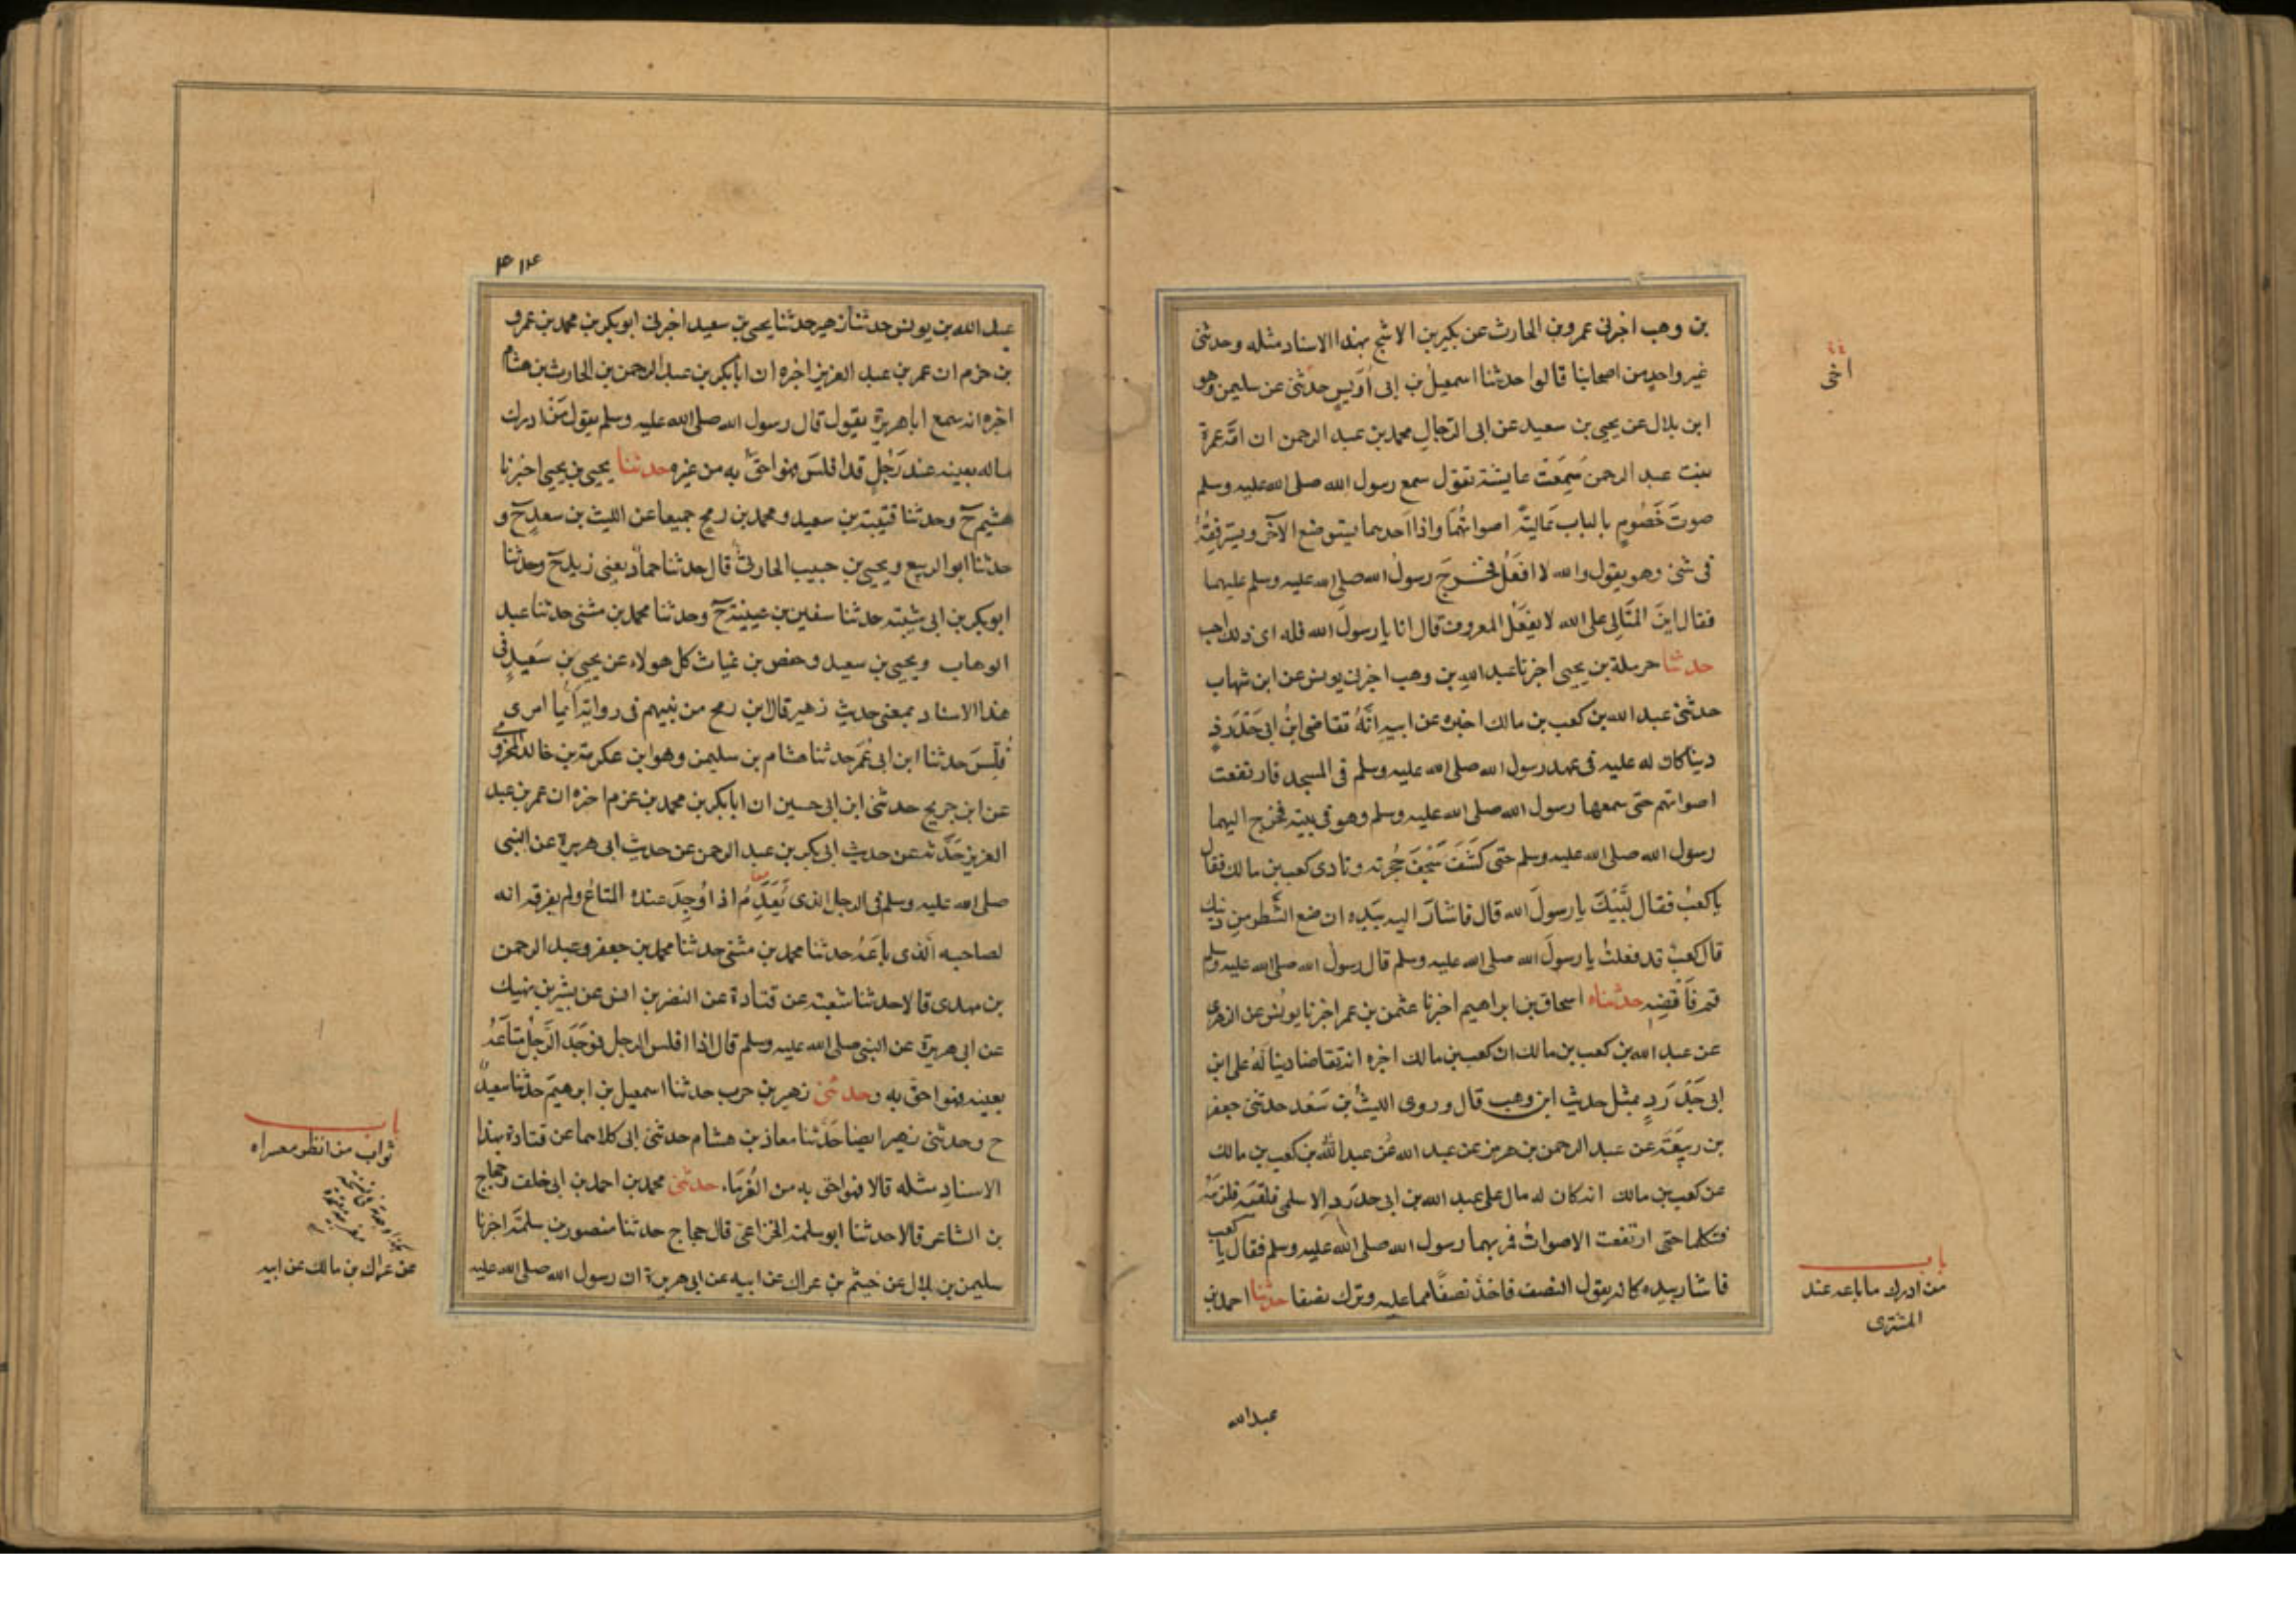 بن وهب اخبرنى عمرو بن الحارث عن بكير بن الاشج بهذا الاسناد مثله وحدثنى
غير واحد من اصحابنا قالوا حدثنا اسمعيل بن ابى أويس حدثنى عن سليمن وهو
ابن بلال عن يحيى بن سعيد عن ابى الرجال محمد بن عبد الرحمن ان امّه عمرة
بنت عبد الرحمن سمعت عايشة تقول سمع رسول الله صلى الله عليه وسلم
صوت خصوم بالباب عالية اصواتهما واذا احدهما يستوضع الآخر ويسترفقه
فى شئ وهو يقول والله لا افعل فخرج رسول الله صلى الله عليه وسلم عليهما
فقال اين المتالى على الله لا يفعل المعروف قال انا يا رسول الله فله اى ذلك احب
حدثنا حرملة بن يحيى اخبرنا عبد الله بن وهب اخبرنى يونس عن ابن شهاب
حدثنى عبد الله بن كعب بن مالك اخبره عن ابيه انّه تقاضى ابن ابى حدرد
دينا كان له عليه فى عهد رسول الله صلى الله عليه وسلم فى المسجد فارتفعت
اصواتهم حتى سمعها رسول الله صلى الله عليه وسلم وهو فى بيته فخرج اليهما
رسول الله صلى الله عليه وسلم حتى كشف سجف حجرته ونادى كعب بن مالك فقال
يا كعب فقال لبّيك يا رسول الله قال فاشار اليه بيده ان ضع الشطر من دينك
قال كعب قد فعلت يا رسول الله صلى الله عليه وسلم قال رسول الله صلى الله عليه وسلم
قم فاقضه حدثناه اسحاق بن ابراهيم اخبرنا عثمن بن عمر اخبرنا يونس عن الزهرى
عن عبد الله بن كعب بن مالك ان كعب بن مالك اخبره انه تقاضا دينا له على ابن
ابى حدرد بمثل حديث ابن وهب قال وروى الليث بن سعد حدثنى جعفر
بن ربيعة عن عبد الرحمن بن هرمز عن عبد الله عن عبد الله بن كعب بن مالك
عن كعب بن مالك انه كان له مال على عبد الله بن ابى حدرد الاسلمى فلقيه فلزمه
فتكلما حتى ارتفعت الاصوات فمر بهما رسول الله صلى الله عليه وسلم فقال يا كعب
فاشار بيده كانه يقول النصف فاخذ نصفا مما عليه وترك نصفا حدثنا احمد بن
اخى
باب
من ادرك ما باعه عند
المشترى
عبدالله
٤١٤
عبد الله بن يونس حدثنا زهير حدثنا يحيى بن سعيد اخبرنى ابو بكر بن محمد بن عمرو
بن حزم ان عمر بن عبد العزيز اخبره ان ابا بكر بن عبد الرحمن بن الحارث بن هشام
اخبره انه سمع ابا هريرة يقول قال رسول الله صلى الله عليه وسلم يقول من ادرك
ماله بعينه عند رجل قد افلس فهو احق به من غيره حدثنا يحيى بن يحيى اخبرنا
هشيم ح وحدثنا قتيبة بن سعيد ومحمد بن رمح جميعا عن الليث بن سعد ح و
حدثنا ابو الربيع ويحيى بن حبيب الحارثى قال حدثنا حماد يعنى زيد ح وحدثنا
ابو بكر بن ابى شيبة حدثنا سفين بن عيينة ح وحدثنا محمد بن مثنى حدثنا عبد
الوهاب ويحيى بن سعيد وحفص بن غياث كل هولاء عن يحيى بن سعيد فى
هذا الاسناد بمعنى حديث زهير قال ابن رمح من بينهم فى روايته ايّما امرى
فلّس حدثنا ابن ابى عمر حدثنا هشام بن سليمن وهو ابن عكرمة بن خالد المخزومى
عن ابن جريج حدثنى ابن ابى حسين ان ابا بكر بن محمد بن عزم اخبره ان عمر بن عبد
العزيز حدّثه عن حديث ابى بكر بن عبد الرحمن عن حديث ابى هريرة عن النبى
صلى الله عليه وسلم فى الرجل الذى يعدم اذا اوجد عنده المتاع ولم يفرقه انه
لصاحبه الّذى باعه حدثنا محمد بن مثنى حدثنا محمد بن جعفر وعبد الرحمن
بن مهدى قالا حدثنا شعبة عن قتادة عن النضر بن انس عن بشير بن نهيك
عن ابى هريرة عن النبى صلى الله عليه وسلم قال اذا افلس الرجل فوجد الرجل متاعه
بعينه فهو احق به وحدثنى زهير بن حرب حدثنا اسمعيل بن ابرهيم حدثنا سعيد
ح وحدثنى زهير ايضا حدّثنا معاذ بن هشام حدثنى ابى كلاهما عن قتادة بهذا
الاسناد مثله قالا فهو احق به من الغرماء حدثنى محمد بن احمد بن ابى خلف وحجاج
بن الشاعر قالا حدثنا ابو سلمة الخزاعى قال حجاج حدثنا منصور بن سلمة اخبرنا
سليمن بن بلال عن خيثم بن عراك عن ابيه عن ابى هريرة ان رسول الله صلى الله عليه
باب
ثواب من انظر معسراه
عن عراك بن مالك عن ابيه